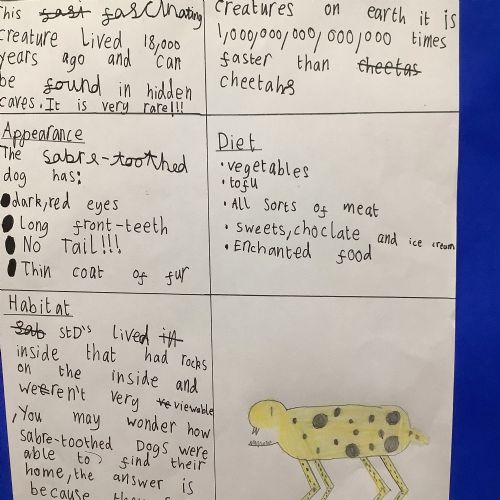 This fast fascinating
creature Lived 18,000
years ago and can
be found in hidden
caves. It is very rare!!!
creatures on earth it is
1,000,000,000,000,000 times
faster than cheetas
cheetahs
Appearance
The sabre-toothed
dog has:
dark,red eyes
Long front-teeth
NO Tail!!!
Thin coat of fur
Diet
• vegetables
• tofu
• All sorts of meat
• sweets, choclate and ice cream
• Enchanted food
Habitat
Sab STD's lived in
inside that had rocks
on the inside and
weren't very ve viewable
,You may wonder how
sabre-toothed DOGS were
able to find their
home, the answer is
because